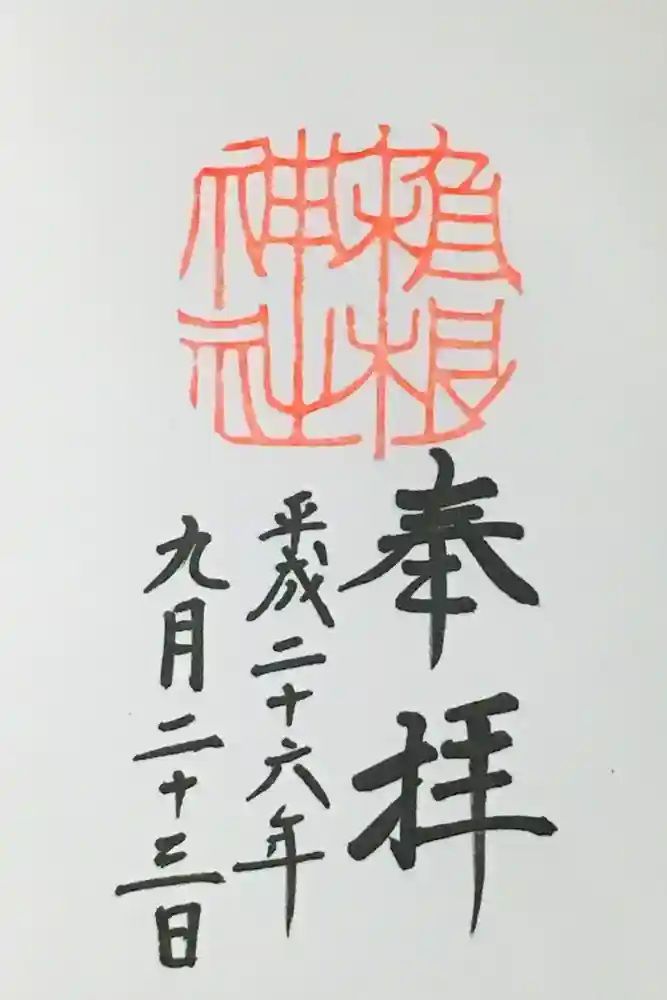 根
神社
奉拝
平成二十六年
九月二十三日